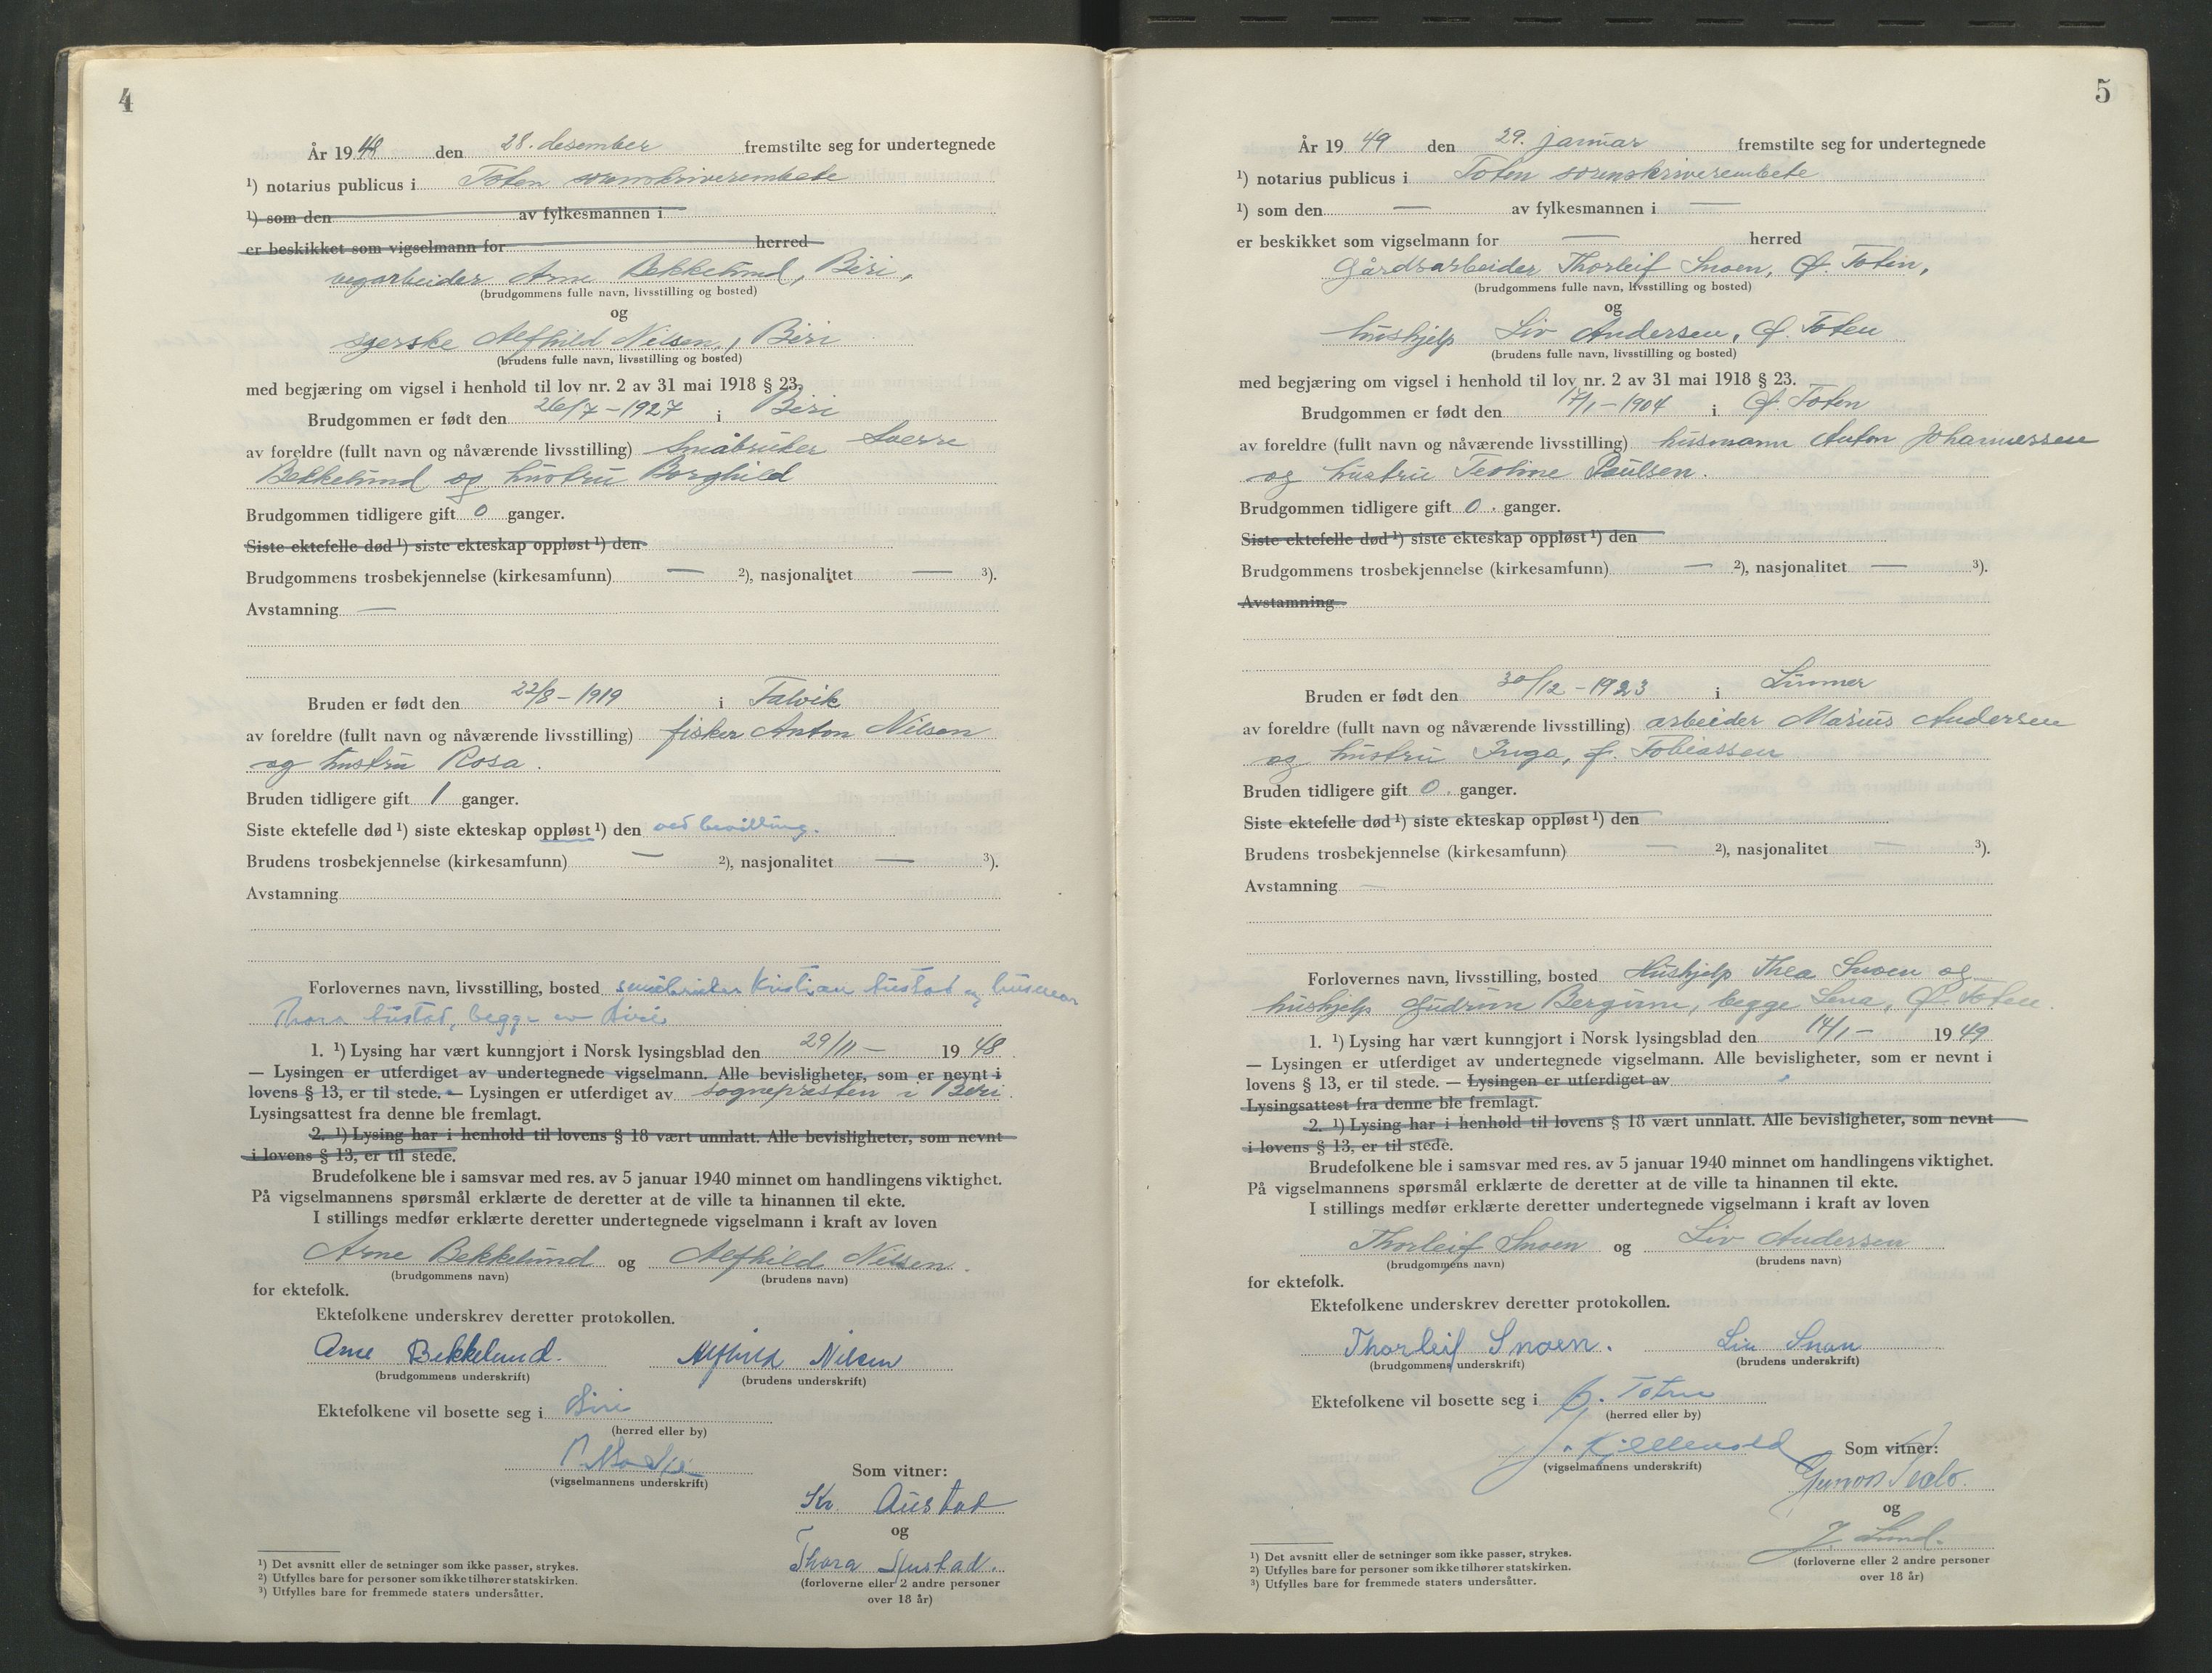 4
År 1948 den 28. desember fremstilte seg for undertegnede
¹) notarius publicus i Toten sorenskriverembete
¹) som den av fylkesmannen i
er beskikket som vigselmann for herred
vegarbeider Arne Bekkelund, Biri,
(brudgommens fulle navn, livsstilling og bosted)
og
syerske Alfhild Nilsen, Biri
(brudens fulle navn, livsstilling og bosted)
med begjæring om vigsel i henhold til lov nr. 2 av 31 mai 1918 § 23.
Brudgommen er født den 26/7-1927 i Biri
av foreldre (fullt navn og nåværende livsstilling) Småbruker Sverre
Bekkelund og hustru Borghild
Brudgommen tidligere gift 0 ganger.
Siste ektefelle død ¹) siste ekteskap oppløst ¹) den
Brudgommens trosbekjennelse (kirkesamfunn) — ²), nasjonalitet — ³).
Avstamning —
Bruden er født den 22/8-1919 i Talvik
av foreldre (fullt navn og nåværende livsstilling) fisker Anton Nilsen
og hustru Rosa.
Bruden tidligere gift 1 ganger.
Siste ektefelle død ¹) siste ekteskap oppløst ¹) den ved bevilling.
Brudens trosbekjennelse (kirkesamfunn) — ²), nasjonalitet — ³).
Avstamning
Forlovernes navn, livsstilling, bosted småbruker Kristian Austad og husmor
Thora Austad, begge av Biri
1. ¹) Lysing har vært kunngjort i Norsk lysingsblad den 29/11- 1948
— Lysingen er utferdiget av undertegnede vigselmann. Alle bevisligheter, som er nevnt i
lovens § 13, er til stede. — Lysingen er utferdiget av sognepresten i Biri.
Lysingsattest fra denne ble fremlagt.
2. ¹) Lysing har i henhold til lovens § 18 vært unnlatt. Alle bevisligheter, som nevnt
i lovens § 13, er til stede.
Brudefolkene ble i samsvar med res. av 5 januar 1940 minnet om handlingens viktighet.
På vigselmannens spørsmål erklærte de deretter at de ville ta hinannen til ekte.
I stillings medfør erklærte deretter undertegnede vigselmann i kraft av loven
Arne Bekkelund og Alfhild Nilsen.
(brudgommens navn) (brudens navn)
for ektefolk.
Ektefolkene underskrev deretter protokollen.
Arne Bekkelund. Alfhild Nilsen
(brudgommens underskrift) (brudens underskrift)
Ektefolkene vil bosette seg i Biri
(herred eller by)
(vigselmannens underskrift)
Som vitner:
Kr. Austad
og
Thora Austad.
(forloverne eller 2 andre personer
over 18 år)
¹) Det avsnitt eller de setninger som ikke passer, strykes.
²) Utfylles bare for personer som ikke tilhører statskirken.
³) Utfylles bare for fremmede staters undersåtter.
5
År 1949 den 29. januar fremstilte seg for undertegnede
¹) notarius publicus i Toten sorenskriverembete
¹) som den — av fylkesmannen i —
er beskikket som vigselmann for — herred
Gårdsarbeider Thorleif Snoen, Ø. Toten,
(brudgommens fulle navn, livsstilling og bosted)
og
hushjelp Liv Andersen, Ø. Toten
(brudens fulle navn, livsstilling og bosted)
med begjæring om vigsel i henhold til lov nr. 2 av 31 mai 1918 § 23.
Brudgommen er født den 17/1-1904 i Ø. Toten
av foreldre (fullt navn og nåværende livsstilling) husmann Anton Johannessen
og hustru Teoline Paulsen.
Brudgommen tidligere gift 0. ganger.
Siste ektefelle død ¹) siste ekteskap oppløst ¹) den
Brudgommens trosbekjennelse (kirkesamfunn) — ²), nasjonalitet — ³).
Avstamning
Bruden er født den 30/12-1923 i Lunner
av foreldre (fullt navn og nåværende livsstilling) arbeider Marius Andersen
og hustru Inga, f. Tobiassen
Bruden tidligere gift 0. ganger.
Siste ektefelle død ¹) siste ekteskap oppløst ¹) den
Brudens trosbekjennelse (kirkesamfunn) — ²), nasjonalitet — ³).
Avstamning —
Forlovernes navn, livsstilling, bosted Hushjelp Thea Snoen og
hushjelp Gudrun Bergum, begge Lena, Ø. Toten
1. ¹) Lysing har vært kunngjort i Norsk lysingsblad den 14/1- 1949
— Lysingen er utferdiget av undertegnede vigselmann. Alle bevisligheter, som er nevnt i
lovens § 13, er til stede. — Lysingen er utferdiget av
Lysingsattest fra denne ble fremlagt.
2. ¹) Lysing har i henhold til lovens § 18 vært unnlatt. Alle bevisligheter, som nevnt
i lovens § 13, er til stede.
Brudefolkene ble i samsvar med res. av 5 januar 1940 minnet om handlingens viktighet.
På vigselmannens spørsmål erklærte de deretter at de ville ta hinannen til ekte.
I stillings medfør erklærte deretter undertegnede vigselmann i kraft av loven
Thorleif Snoen og Liv Andersen
(brudgommens navn) (brudens navn)
for ektefolk.
Ektefolkene underskrev deretter protokollen.
Thorleif Snoen. Liv Snoen
(brudgommens underskrift) (brudens underskrift)
Ektefolkene vil bosette seg i Ø. Toten
(herred eller by)
(vigselmannens underskrift)
Som vitner:
og
J. Lund.
(forloverne eller 2 andre personer
over 18 år)
¹) Det avsnitt eller de setninger som ikke passer, strykes.
²) Utfylles bare for personer som ikke tilhører statskirken.
³) Utfylles bare for fremmede staters undersåtter.